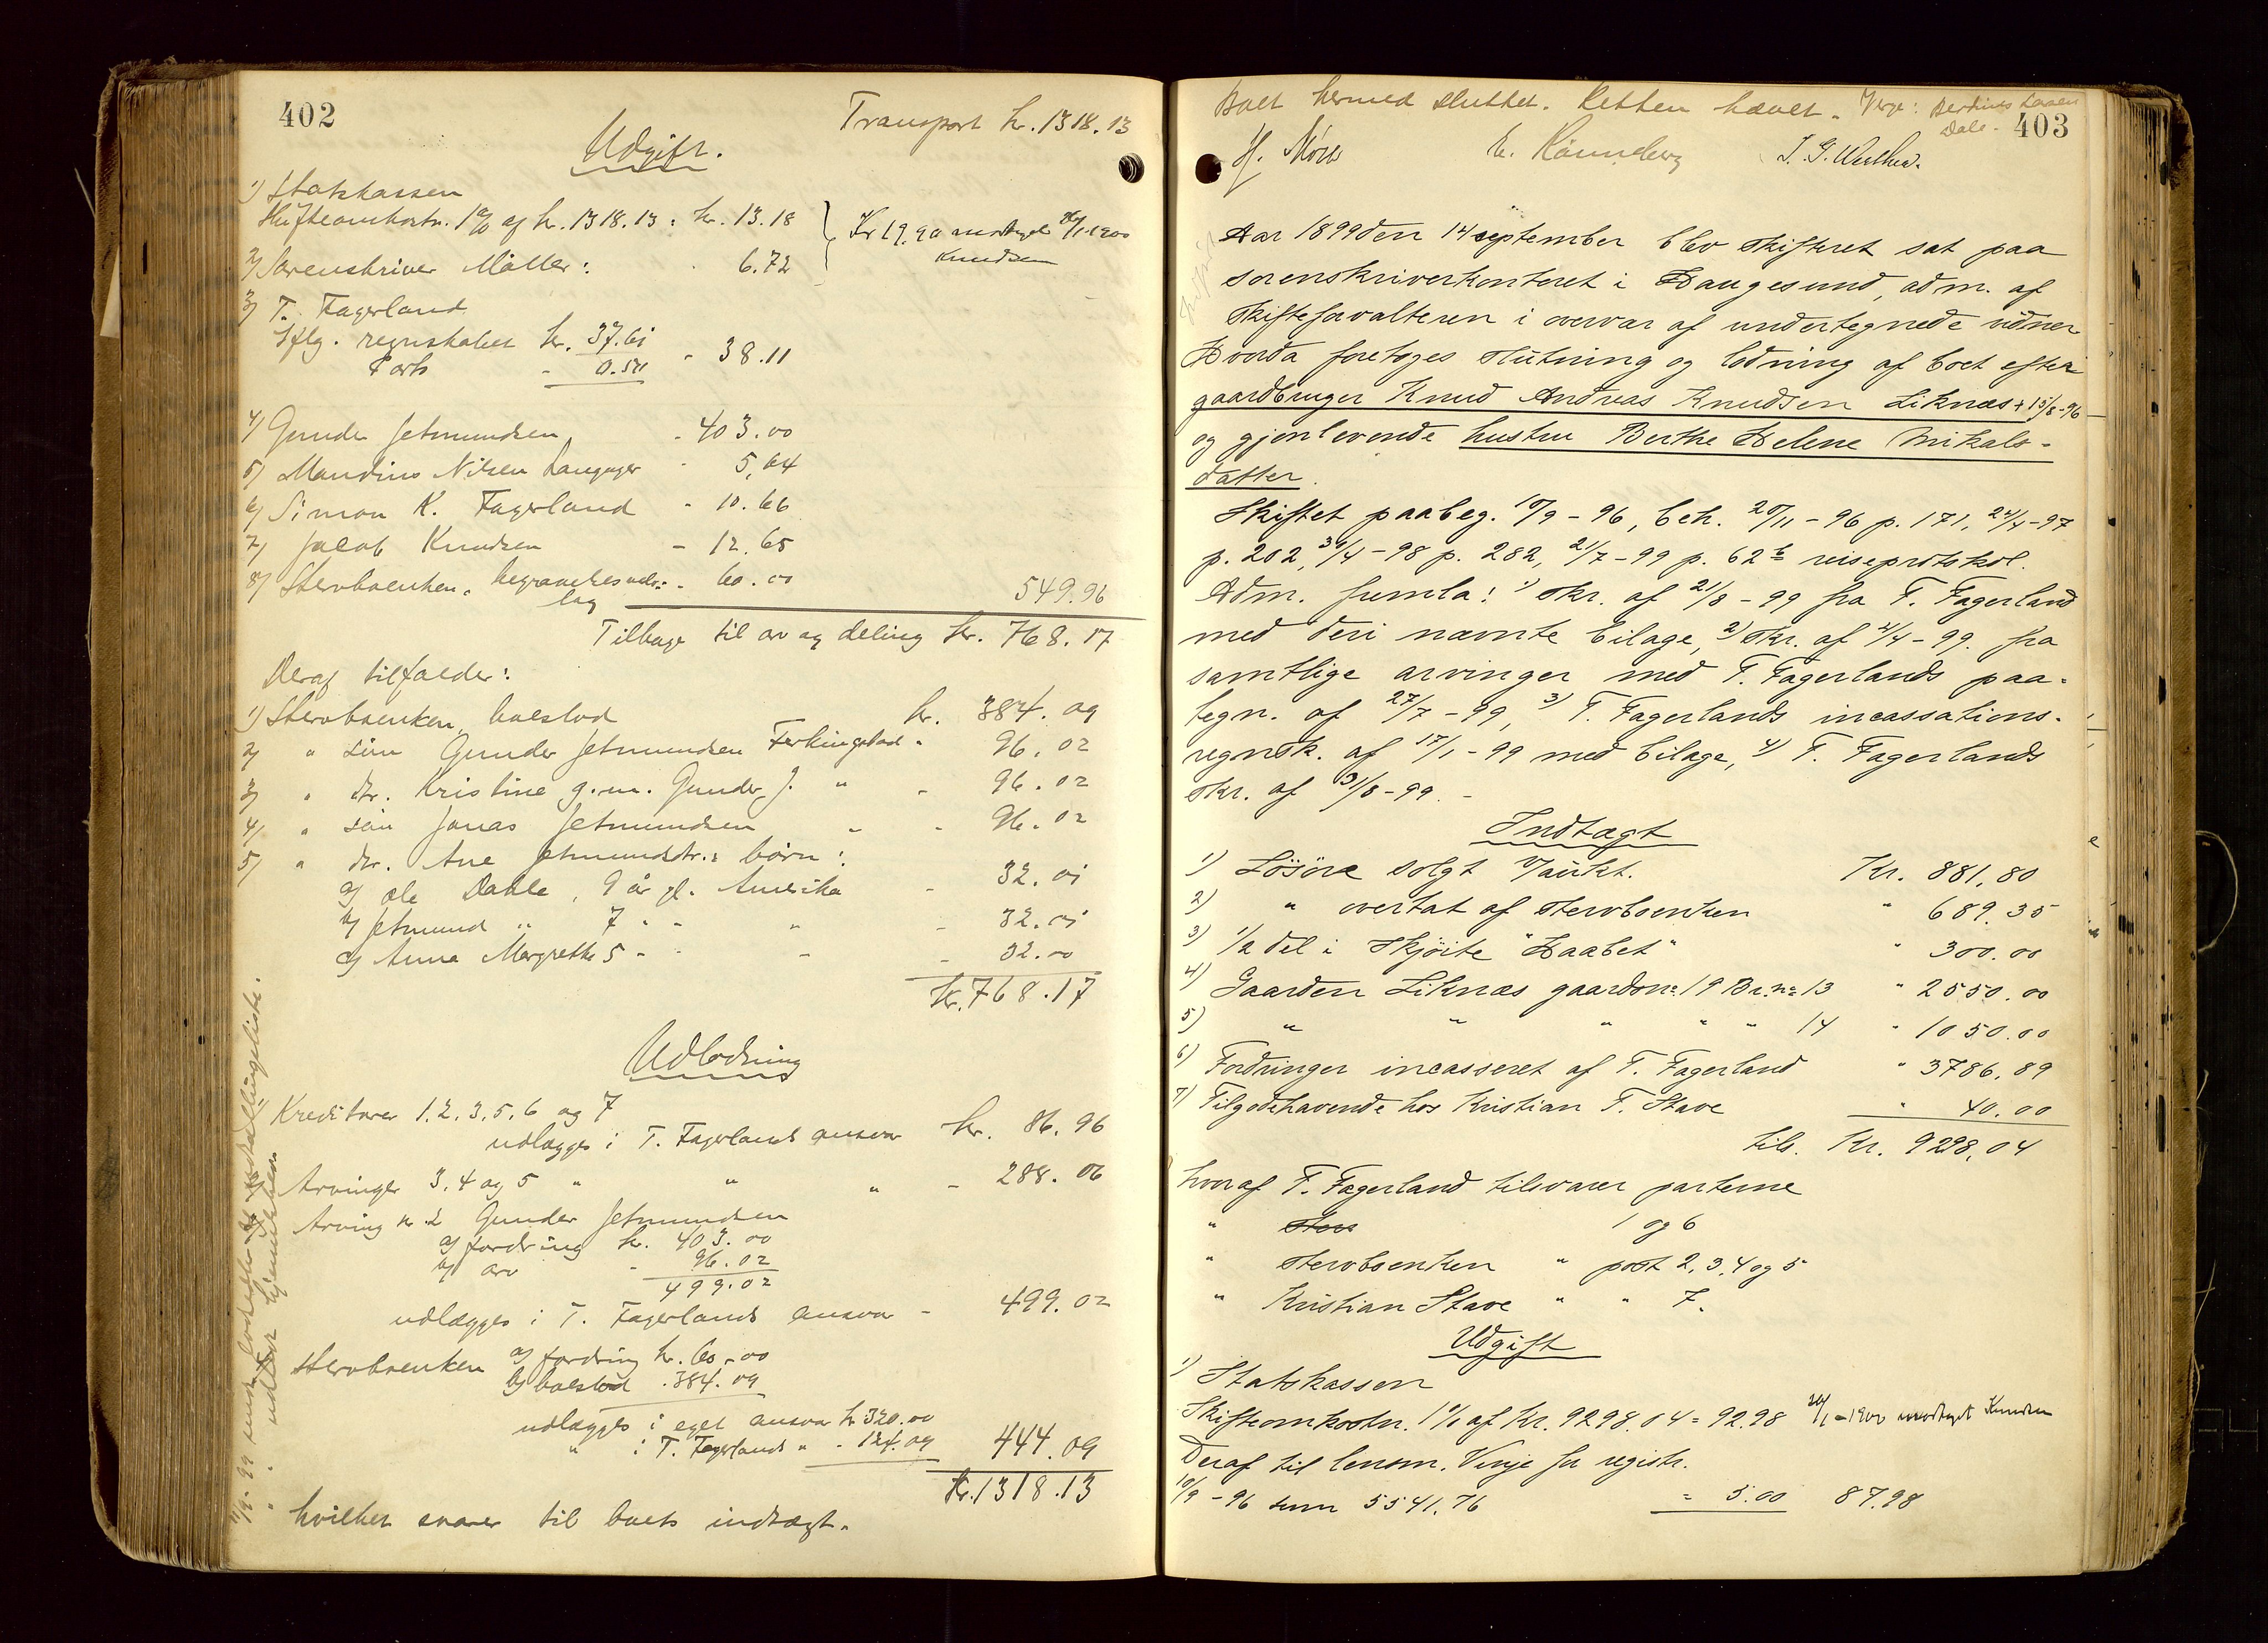 402
Transport kr. 1318.13
Udgift.
1) Statskassen
Skifteomkostn. 1% af kr. 1318.13 : kr. 13.18
2) Sorenskriver Møller : - 6.72
Kr 19.90 modtaget 26/1-1900
Knudsen
3) T. Fagerland
Iflg. regnskabet kr. 37.61
Porto - 0.50 - 38.11
4) Gunder Jetmundsen - 403.00
5) Mandius Nilsen Langager - 5.64
6) Simon K. Fagerland - 10.66
7) Jacob Knudsen - 12.65
8) Stervboenken, begravelsesud- - 60.00
læg 549.96
Tilbage til arv og deling kr. 768.17
Deraf tilfalder:
1) Stervboenken, boeslod kr. 384.09
2) " søn Gunder Jetmundsen Ferkingstad " 96.02
3) " dtr. Kristine g.m. Gunder J. " - 96.02
4) " søn Jonas Jetmundsen " - 96.02
5) " dtr. Ane Jetmundsdtr.s børn :
a) Ole Dahle, 9 år gl. Amerika - 32.01
b) Jetmund " 7 " - " - 32.01
c) Anna Margrethe 5 - " - - 32.00
kr. 768.17
Udlodning
Kreditorer 1.2.3.5.6 og 7
udlægges i T. Fagerlands ansvar kr. 86.96
Arvinger 3.4 og 5 " " " - 288.06
Arving nr 2 Gunder Jetmundsen
a) fordring kr. 403.00
b) arv - 96.02
499.02
udlægges i T. Fagerlands ansvar - 499.02
Stervboenken a) fordring kr. 60.00
b) boeslod - 384.09
udlægges i eget ansvar kr 320.00
" i T. Fagerlands " - 124.09 444.09
Kr. 1318.13
hvilket svarer til boets indtægt.
403
Boet hermed sluttet. Retten hævet. Verge: Berthius Larsen
Dale.
H. Mörk E. Rönneberg
Aar 1899 den 14 september blev skifteret sat paa
sorenskriverkontoret i Haugesund, adm. af
skifteforvalteren i overvær af undertegnede vidner
Hvorda foretoges slutning og lodning af boet efter
gaardbruger Knud Andreas Knudsen Liknæs + 15/8-96
og gjenlevende hustru Berthe Helene Mikals-
datter.
Skiftet paabeg. 10/9-96, beh. 20/11-96 p. 171, 24/4-97
p. 202, 30/4-98 p. 282, 21/7-99 p. 62b reiseprotokol.
Adm. fremla: 1) skr. af 21/8-99 fra T. Fagerland
med deri nævnte bilage, 2) skr. af 4/4-99. fra
samtlige arvinger med T. Fagerlands paa-
tegn. af 27/7-99, 3) T. Fagerlands incassations-
regnsk. af 17/1-99 med bilage, 4) T. Fagerlands
skr. af 31/8-99. -
Indtægt
1) Løsøre solgt v/aukt. Kr. 881,80
2) " overtat af stervboenken " 689.35
3) 1/2 del i skjøite "Haabet" " 300.00
4) Gaarden Liknæs gaardsnr. 19 Br. nr 13 " 2550.00
5) " " " " " 14 " 1050.00
6) Fordringer incasseret af T. Fagerland " 3786.89
7) Tilgodehavende hos Kristian T. Stave " 40.00
tils. Kr. 9298.04
hvoraf T. Fagerland tilsvarer posterne
" 1 og 6
" stervboenken " post 2.3.4 og 5
" Kristian Stave " " 7.
Udgift
1) Statskassen
Skifteomkostn. 1% af Kr. 9298.04 = 92.98 26/1-1900 modtaget Knudsen
Deraf til lensm. Vinje for registr.
10/9-96 sum 5541.76 = 5.00 87.98